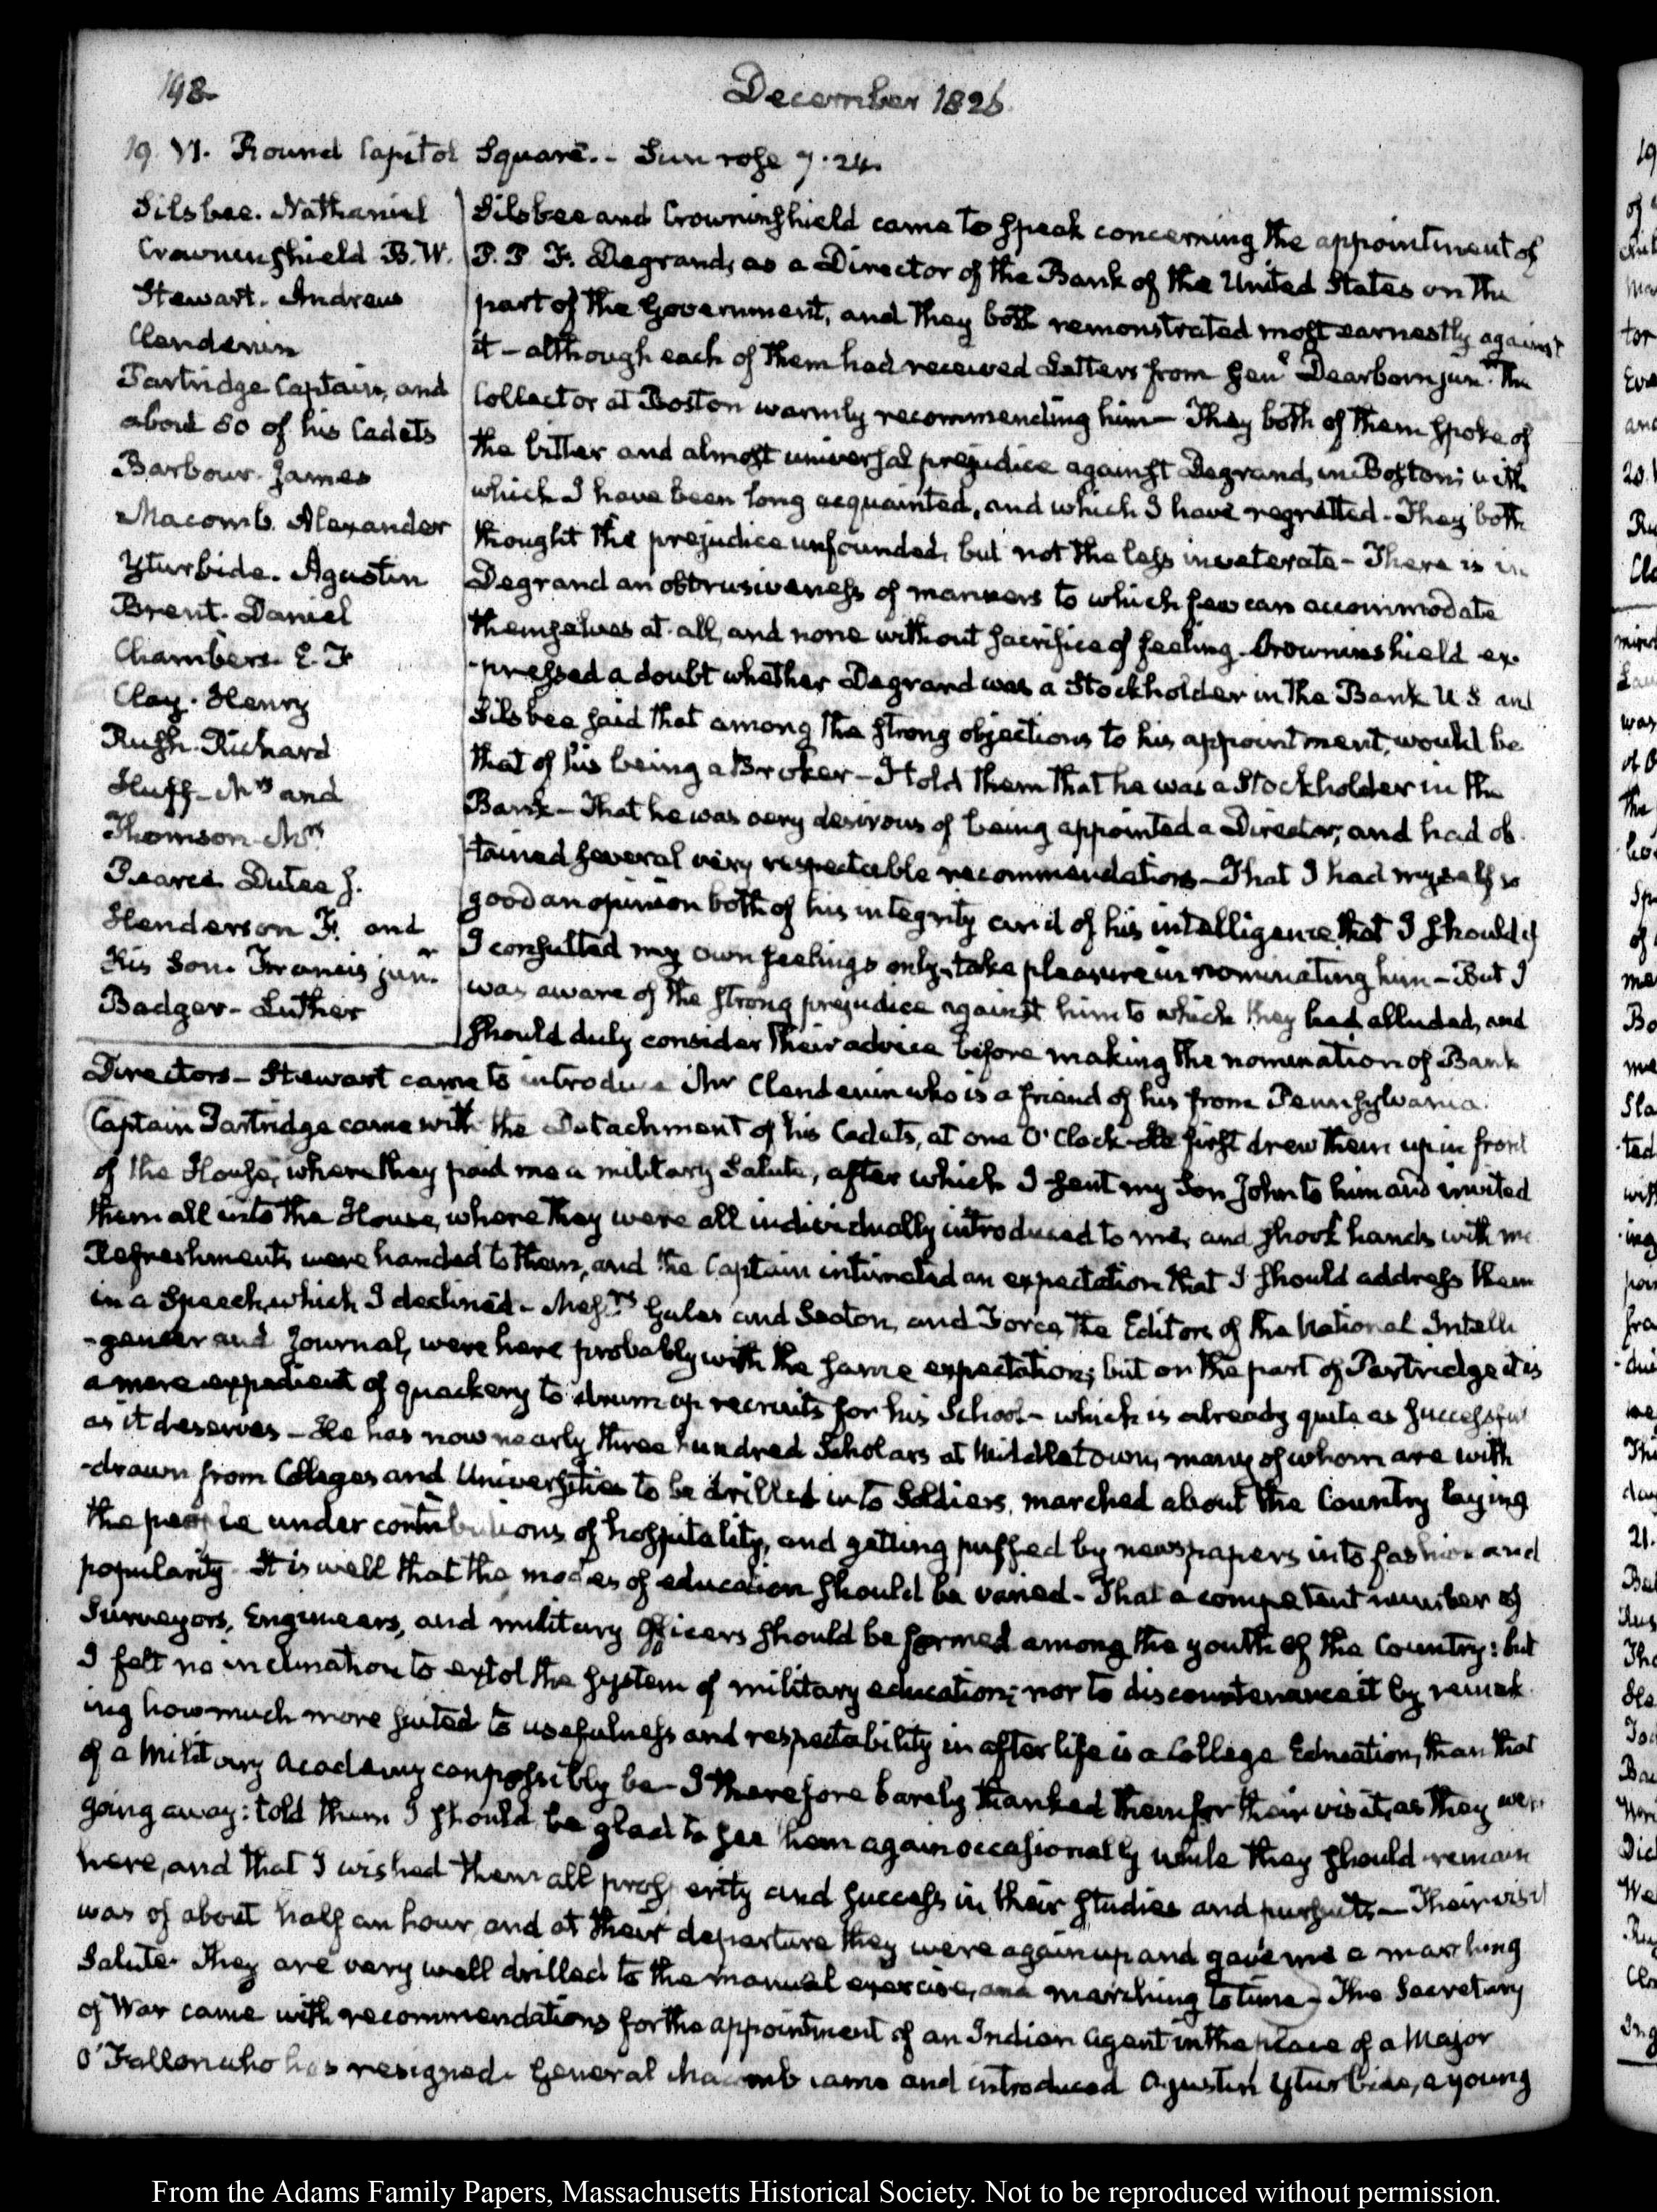 198.
December 1826.
19. VI. Round Capitol Square.- Sun rose 7.24.
Silsbee. Nathaniel
Crowninshield B. W.
Stewart. Andrew
Clendenin
Partridge Captain, and
about 60 of his Cadets
Barbour. James
Macomb. Alexander
Yturbide. Agustin
Brent. Daniel
Chambers. E. F
Clay. Henry
Rush. Richard
Huff- Mrs and
Thomson Mrs
Pearce Dutee J.
Henderson F. and
his Son. Francis junr
Badger- Luther
Silsbee and Crowninshield came to speak concerning the appointment of
P. P. F. Degrand, as a Director of the Bank of the United States on the
part of the Government, and they both remonstrated most earnestly against
it- although each of them had received Letters from Genl Dearborn junr. the
Collector at Boston warmly recommending him- They both of them spoke of
the bitter and almost universal prejudice against Degrand, in Boston; with
which I have been long acquainted, and which I have regretted- They both
thought the prejudice unfounded, but not the less inveterate- There is in
Degrand an obtrusiveness of manners to which few can accommodate
themselves at all, and none without sacrifice of feeling. Crowninshield ex-
-pressed a doubt whether Degrand was a Stockholder in the Bank U. S. and
Silsbee said that among the strong objections to his appointment, would be
that of his being a Broker- I told them that he was a Stockholder in the
Bank- That he was very desirous of being appointed a Director, and had ob-
-tained several very respectable recommendations- That I had myself so
good an opinion both of his integrity and of his intelligence that I should if
I consulted my own feelings only, take pleasure in nominating him- But I
was aware of the strong prejudice against him to which they had alluded, and
should duly consider their advice before making the nomination of Bank
Directors- Stewart came to introduce Mr Clendenin who is a friend of his from Pennsylvania.
Captain Partridge came with the Detachment of his Cadets, at one O'Clock- He first drew them up in front
of the House, where they paid me a military Salute, after which I sent my Son John to him and invited
them all into the House, where they were all individually introduced to me, and shook hands with me
Refreshments were handed to them, and the Captain intimated an expectation that I should address them
in a Speech, which I declined- Messrs Gales and Seaton, and Force, the Editors of the National Intelli
-gencer and Journal, were here probably with the same expectation; but on the part of Partridge it is
a mere expedient of quackery to drum up recruits for his School- which is already quite as successful
as it deserves- He has now nearly three hundred Scholars at Middletown, many of whom are with
-drawn from Colleges and Universities to be drilled into Soldiers, marched about the Country laying
the people under contributions of hospitality, and getting puffed by newspapers into fashion and
popularity- It is well that the modes of education should be varied- That a competent number of
Surveyors, Engineers, and military Officers should be formed among the youth of the Country: but
I felt no inclination to extol the system of military education; nor to discountenance it by remark
ing how much more suited to usefulness and respectability in after life is a College Education, than that
of a Military Academy can possibly be- I therefore barely thanked them for their visit, as they were
going away: told them I should be glad to see them again occasionally while they should remain
here, and that I wished them all prosperity and success in their studies and pursuits- Their visit
was of about half an hour, and at their departure they were again up and gave me a marching
Salute- They are very well drilled to the manual exercise, and marching to time- The Secretary
of War came with recommendations for the appointment of an Indian Agent in the place of a Major
O'Fallon who has resigned. General Macomb came and introduced Agustin Yturbide, a young
From the Adams Family Papers, Massachusetts Historical Society. Not to be reproduced without permission.